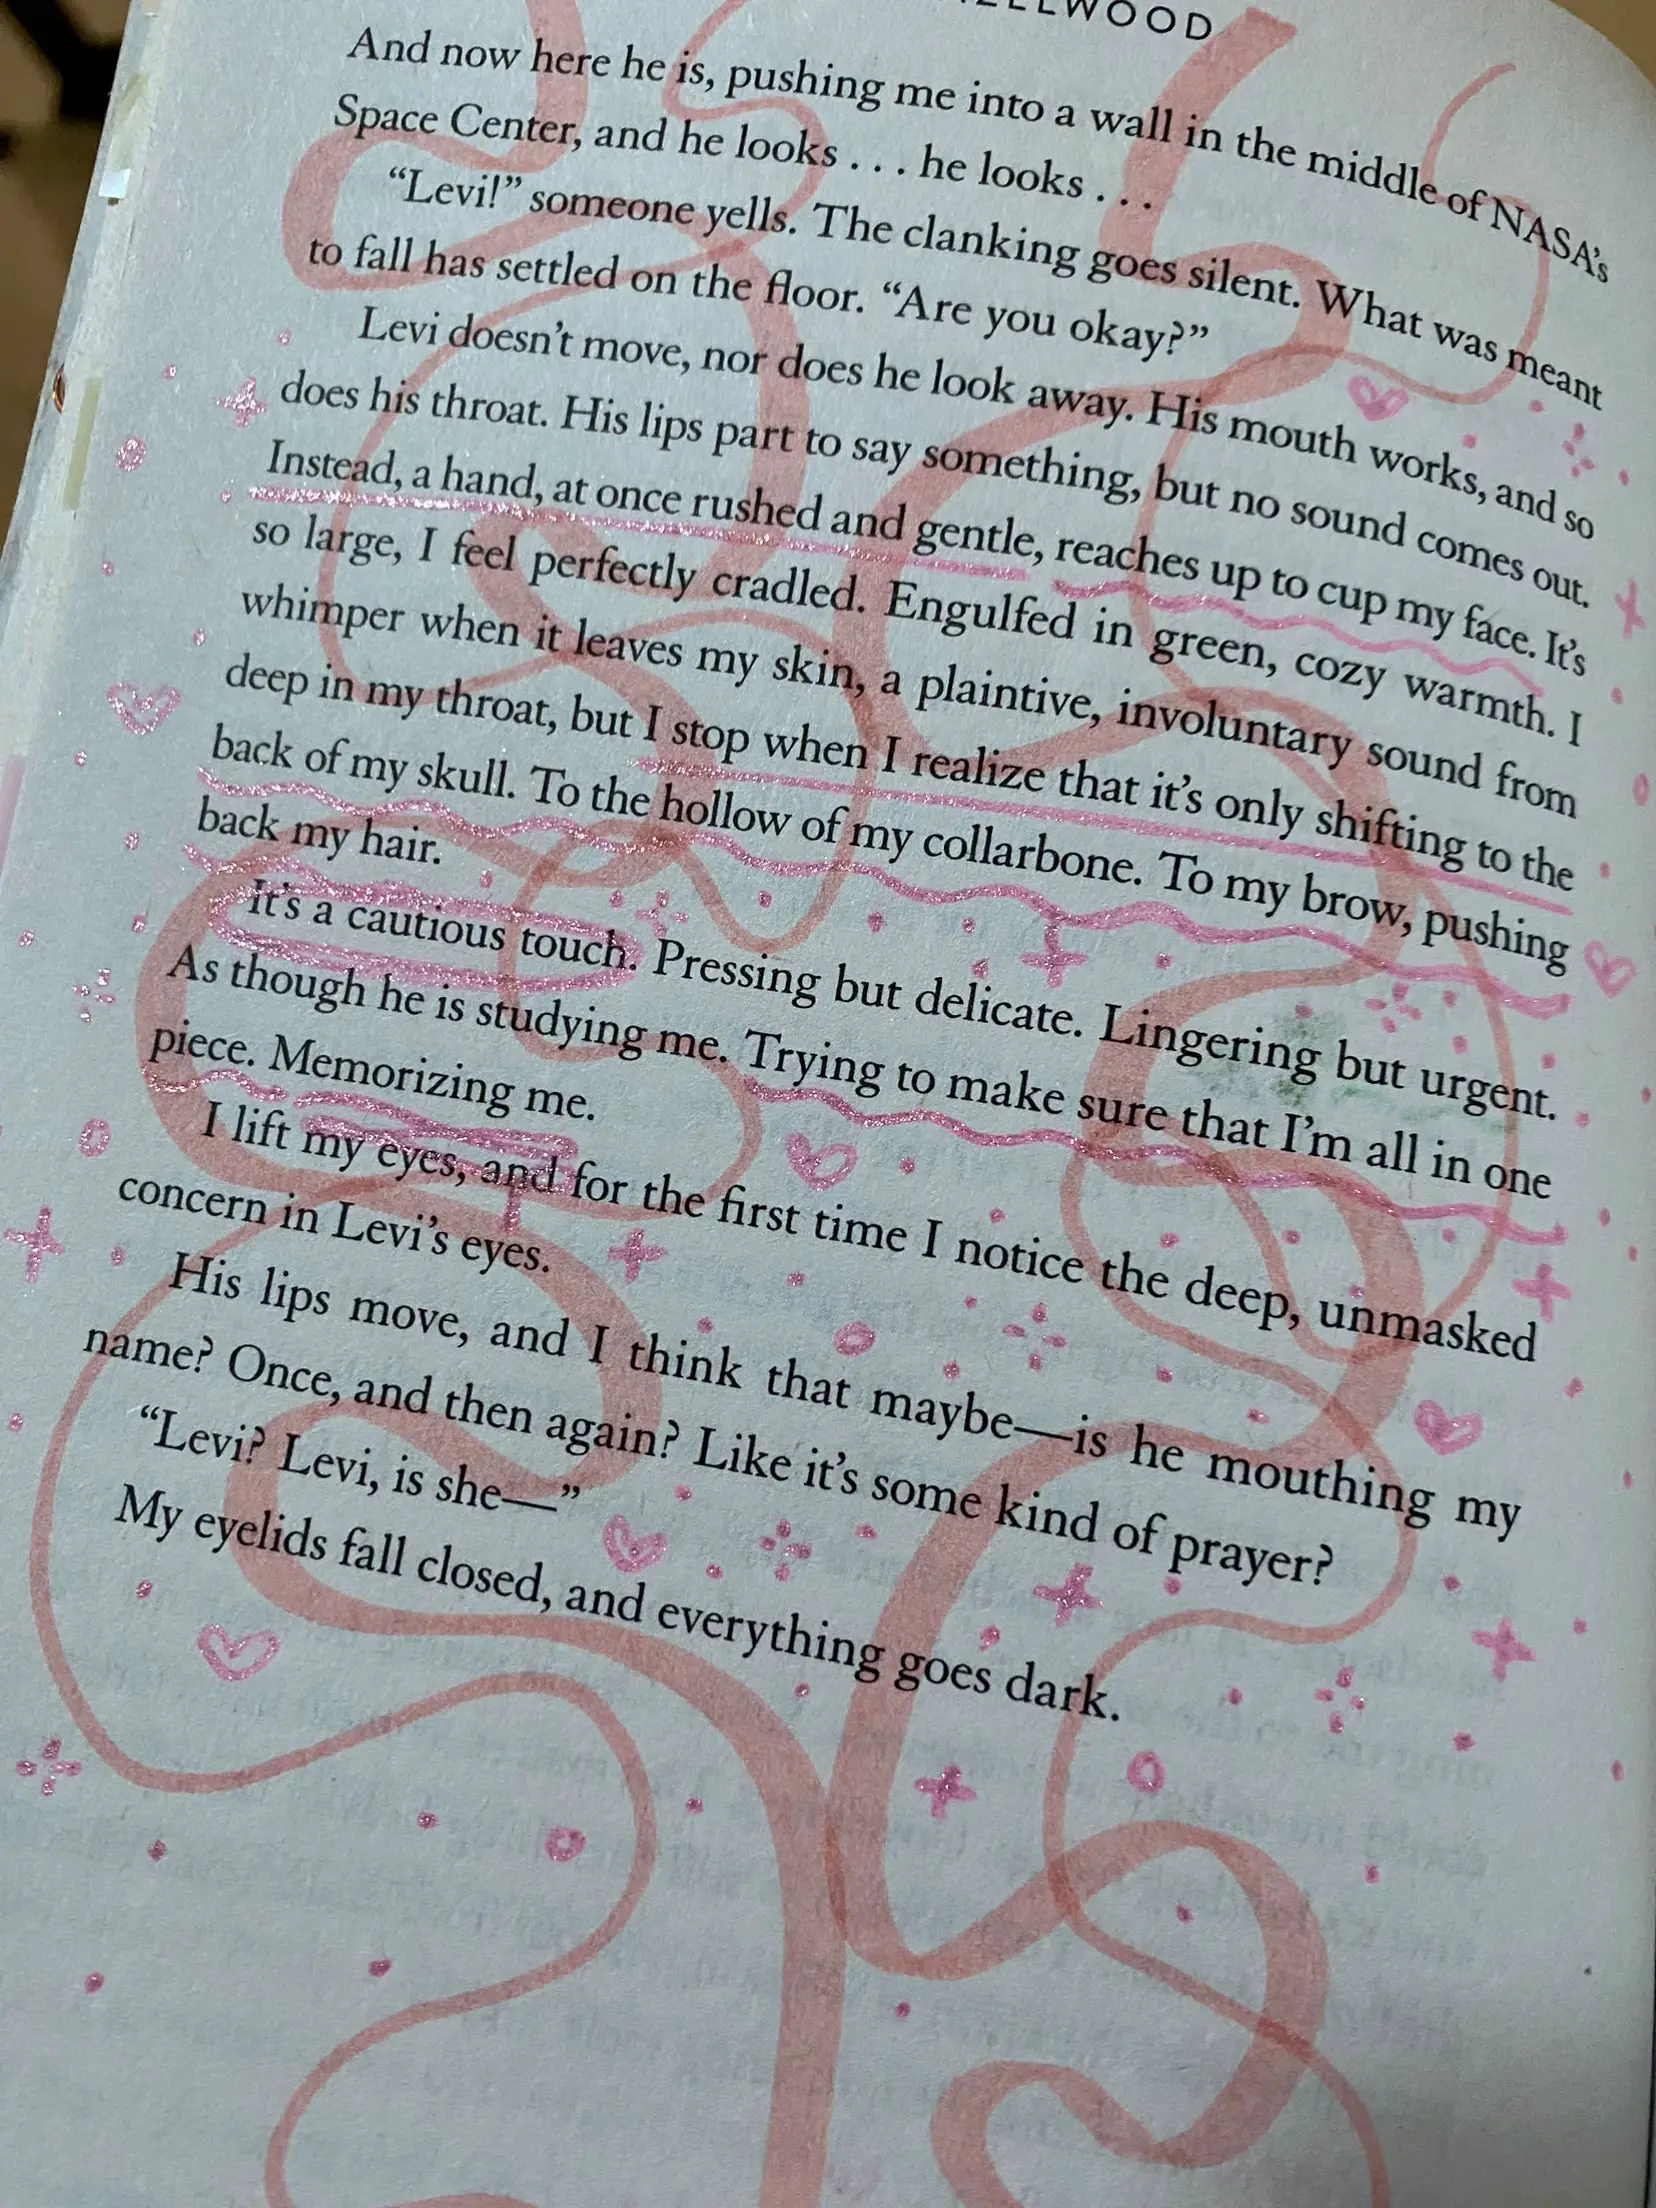 And now here he is, pushing me into a wall in the middle of NASA's
Space Center, and he looks . . . he looks . . .
“Levi!” someone yells. The clanking goes silent. What was meant
to fall has settled on the floor. “Are you okay?”
Levi doesn't move, nor does he look away. His mouth works, and so
does his throat. His lips part to say something, but no sound comes out.
Instead, a hand, at once rushed and gentle, reaches up to cup my face. It's
so large, I feel perfectly cradled. Engulfed in green, cozy warmth. I
whimper when it leaves my skin, a plaintive, involuntary sound from
deep in my throat, but I stop when I realize that it's only shifting to the
back of my skull. To the hollow of my collarbone. To my brow, pushing
back my hair.
It's a cautious touch. Pressing but delicate. Lingering but urgent.
As though he is studying me. Trying to make sure that I'm all in one
piece. Memorizing me.
I lift my eyes, and for the first time I notice the deep, unmasked
concern in Levi's eyes.
His lips move, and I think that maybe—is he mouthing my
name? Once, and then again? Like it's some kind of prayer?
“Levi? Levi, is she—”
My eyelids fall closed, and everything goes dark.